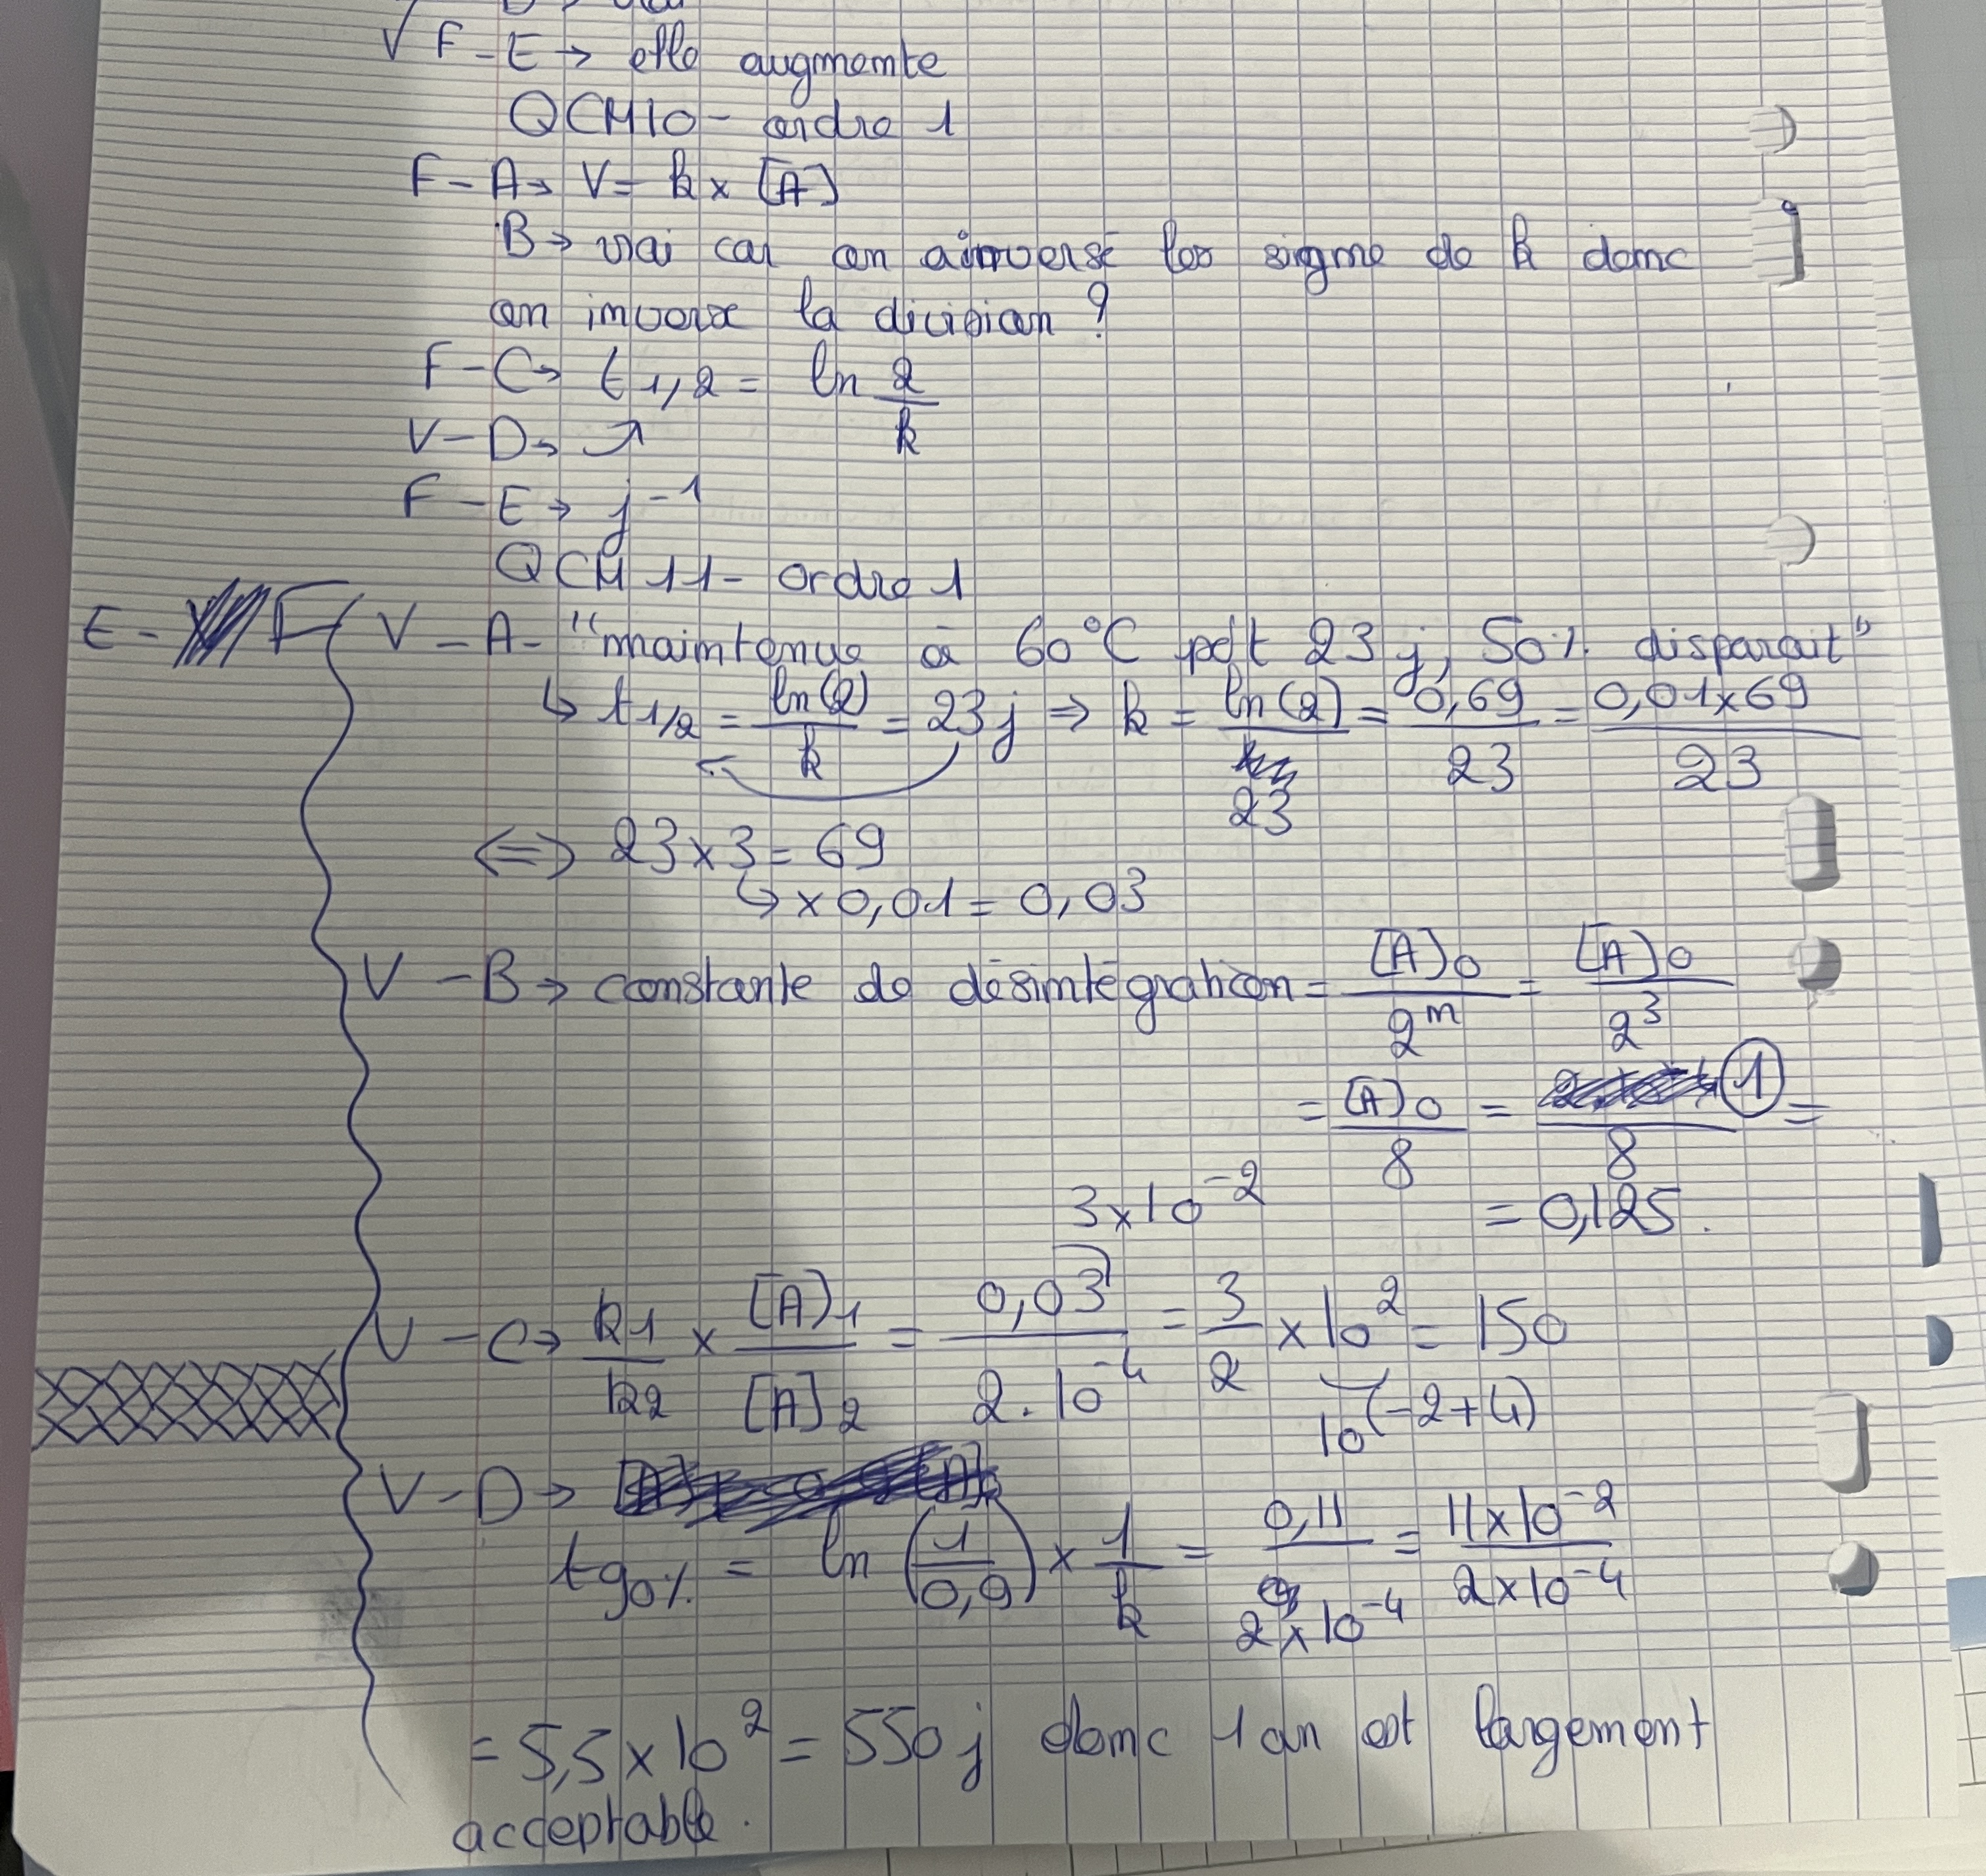 V F - E → elle augmente
QCM10 - ordre 1
F - A → V = k x [A]
B → vrai car on a inversé les signe de k donc
on inverse la division ?
F - C → t 1/2 = ln 2/k
V - D → ↗
F - E → j⁻¹
QCM 11 - ordre 1
E - F
V - A - "maintenue à 60°C pdt 23 j, 50% disparait"
↳ t1/2 = ln(2)/k = 23 j ⇒ k = ln(2)/23 = 0,69/23 = 0,01x69/23
⟺ 23 x 3 = 69
↳ x 0,01 = 0,03
V - B → constante de désintégration = [A]0/2^n = [A]0/2³
= [A]0/8 = 1/8 =
= 0,125.
3x10⁻²
V - C → k1/k2 x [A]1/[A]2 = 0,03/2.10⁻⁴ = 3/2 x 10² = 150
10^(-2+4)
V - D →
t90% = ln (1/0,9) x 1/k = 0,11/2x10⁻⁴ = 11x10⁻²/2x10⁻⁴
= 5,5 x 10² = 550 j donc 1 an est largement
acceptable.